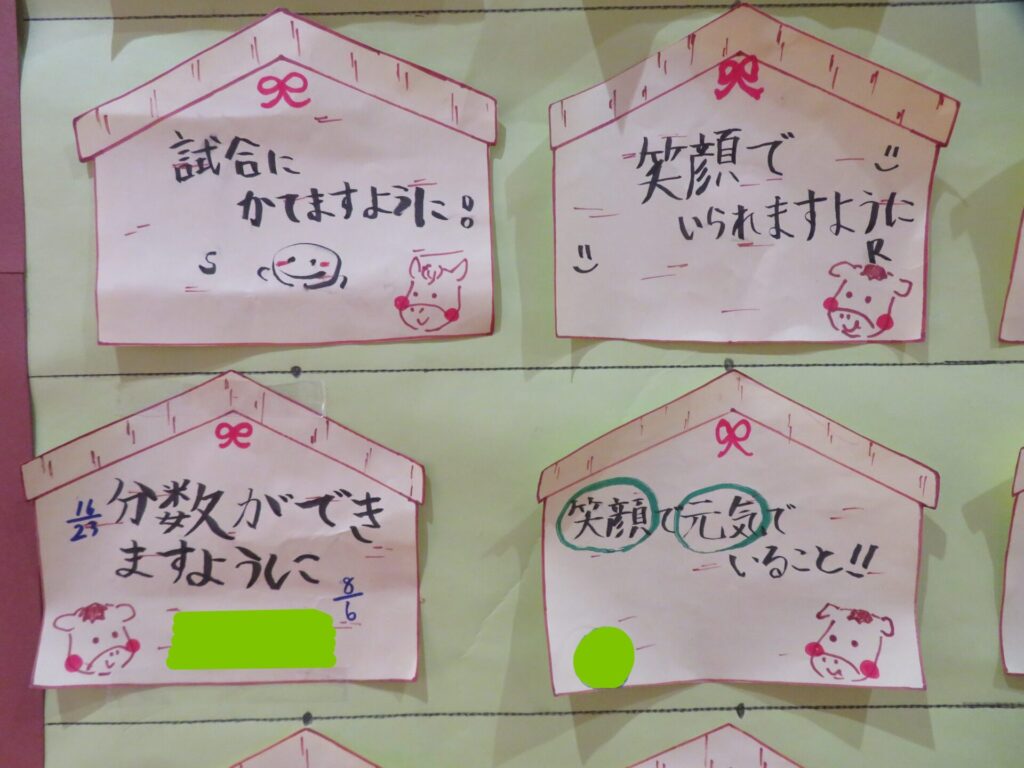 試合に
かてますように!!
S
笑顔で
いられますように
R
16/23
分数ができ
ますように
8/6
笑顔で元気で
いること!!